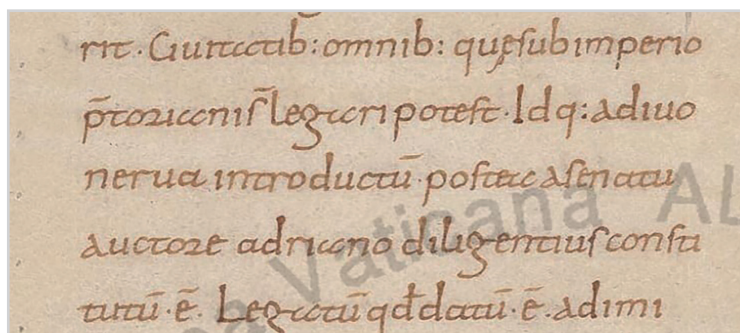 rit · Ciuitatib: omnib: quę sub imperio
p̄toriani s̄ legari potest · Idq: a diuo
nerua introductū · postea a senatu
auctore adriano diligentius consti
tutū · ē · Legatū qđ datū · ē · adimi